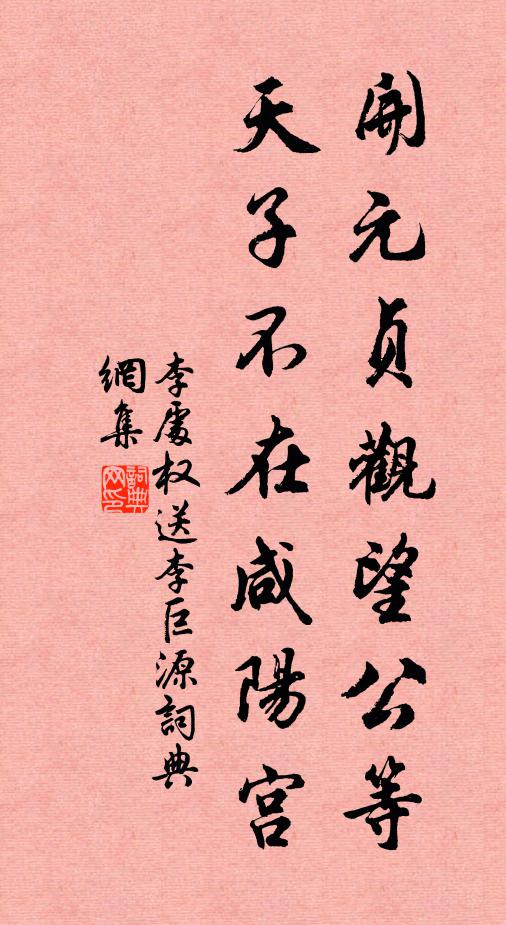 開元貞觀望公等
天子不在咸陽宮
李處权送李巨源詞典
網集
詞典
网印